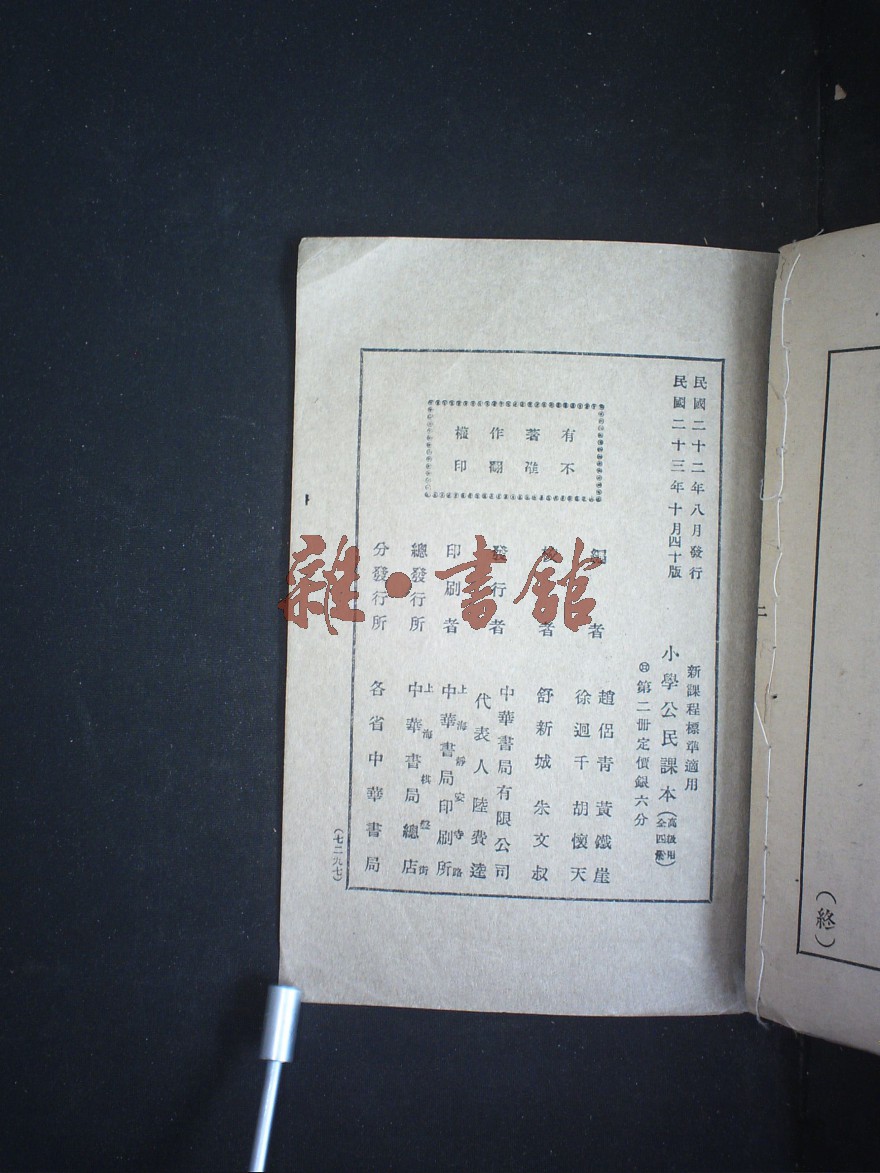 民國二十二年八月發行
民國二十三年十月四十版
新課程標準適用
小學公民課本(高級用全四冊)
第二冊定價銀六分
有著作權
不准翻印
編者 趙侶青 黃鐵崖
徐迥千 胡懷天
校者 舒新城 朱文叔
發行者 中華書局有限公司
代表人 陸費逵
印刷者 上海靜安寺路
中華書局印刷所
總發行所 上海棋盤街
中華書局總店
分發行所 各省中華書局
(七二九七)
二
(終)
雜·書館